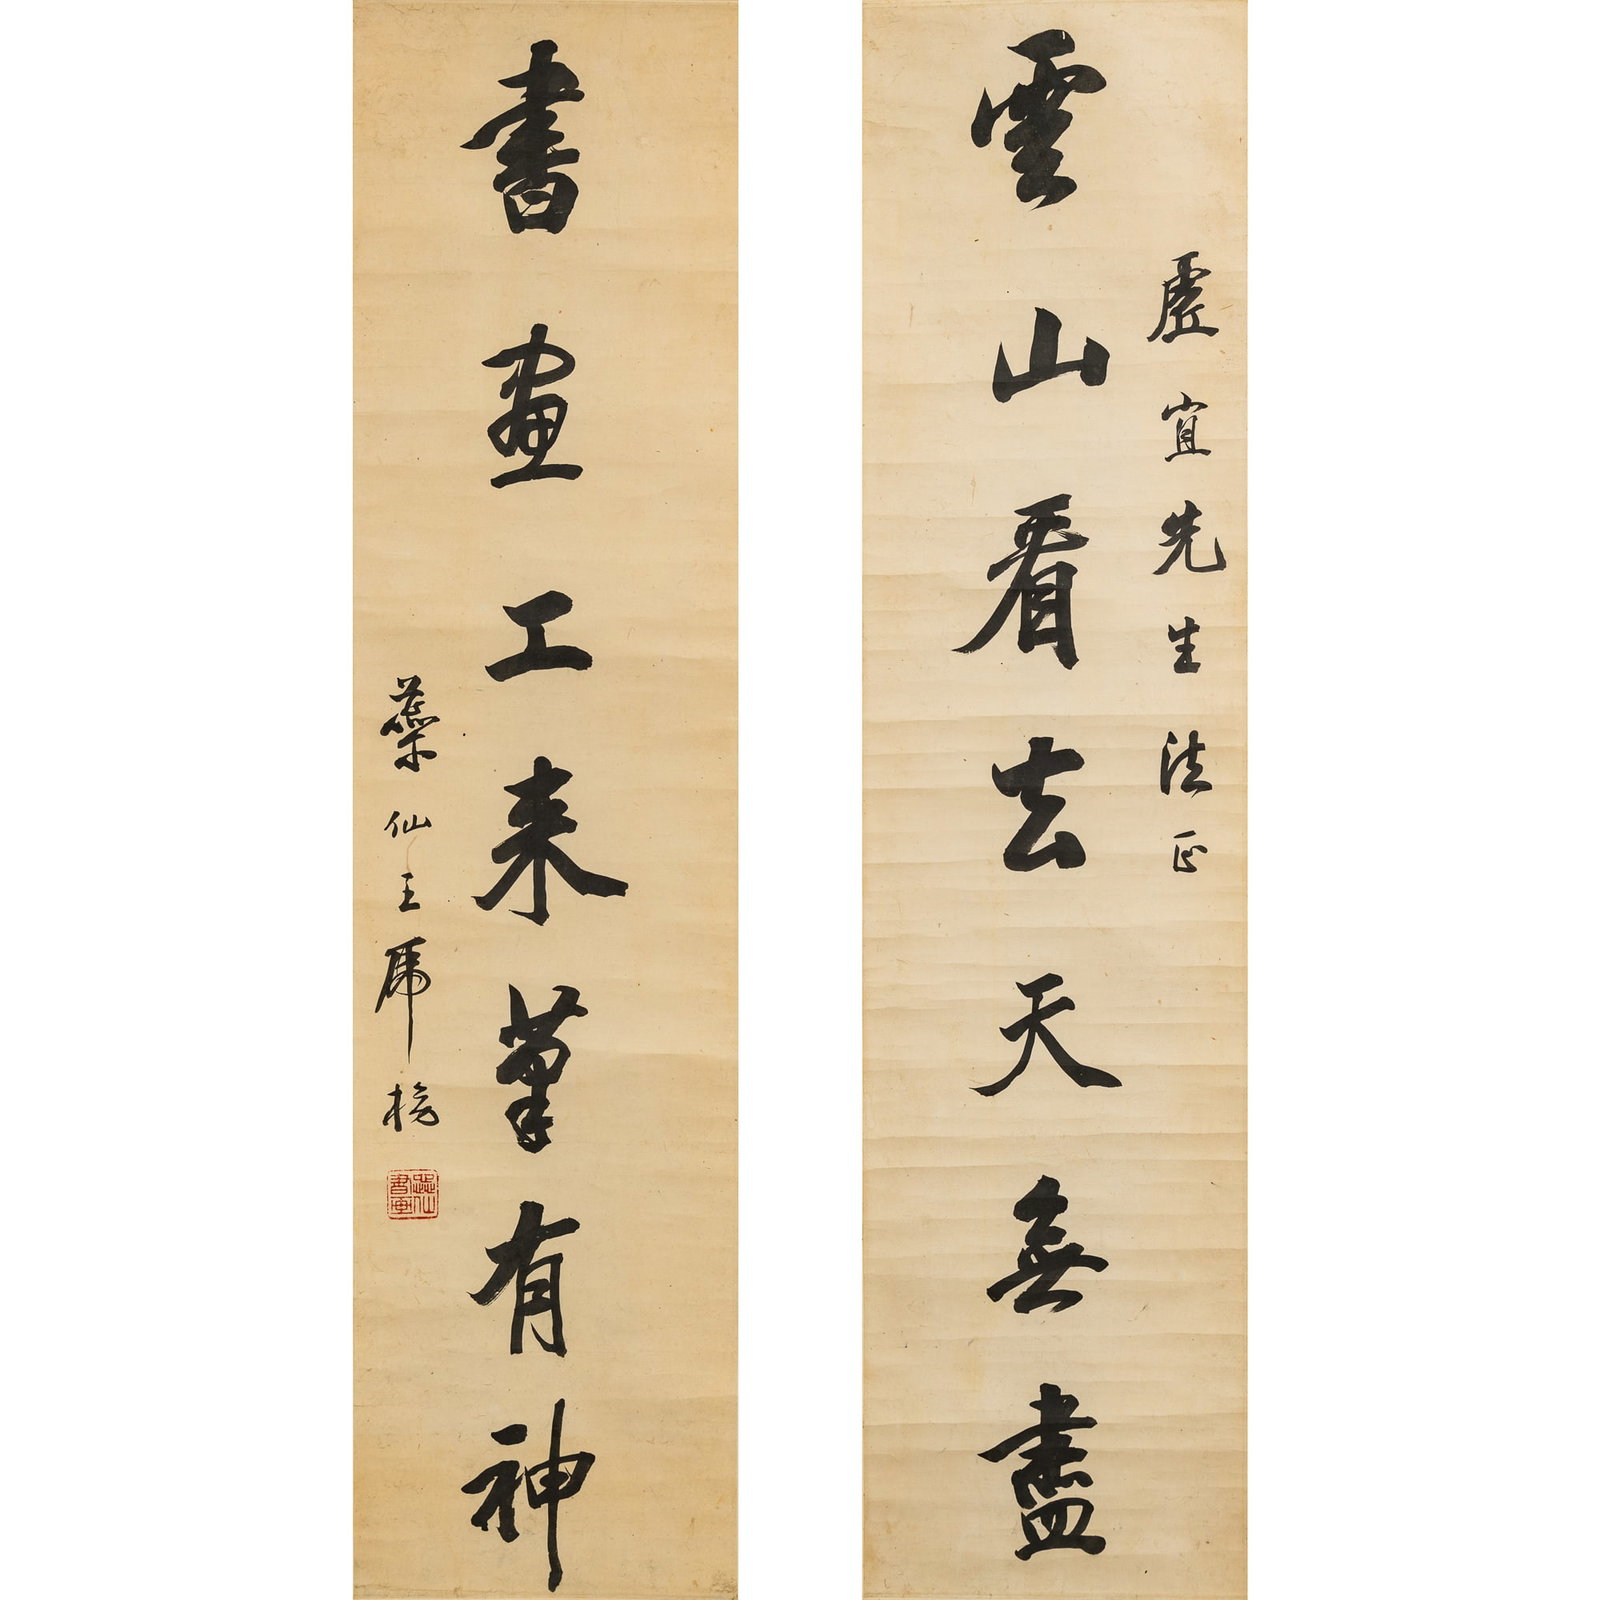 虛宜先生法正
雲山看去天無盡
書畫工來筆有神
蘂仙王虎榜
蕊仙書畫